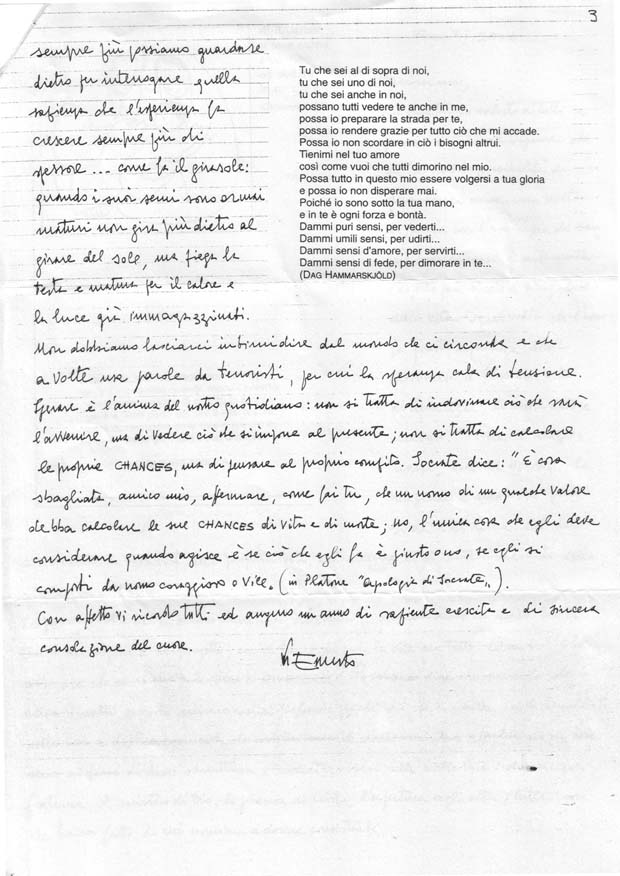 3
sempre più possiamo guardare
dietro per interrogare quella
sapienza che l'esperienza fa
crescere sempre più di
spessore... come fa il girasole:
quando i suoi semi sono ormai
maturi non gira più dietro al
girare del sole, ma piega la
testa e matura per il calore e
la luce già immagazzinati.
Tu che sei al di sopra di noi,
tu che sei uno di noi,
tu che sei anche in noi,
possano tutti vedere te anche in me,
possa io preparare la strada per te,
possa io rendere grazie per tutto ciò che mi accade.
Possa io non scordare in ciò i bisogni altrui.
Tienimi nel tuo amore
così come vuoi che tutti dimorino nel mio.
Possa tutto in questo mio essere volgersi a tua gloria
e possa io non disperare mai.
Poiché io sono sotto la tua mano,
e in te è ogni forza e bontà.
Dammi puri sensi, per vederti...
Dammi umili sensi, per udirti...
Dammi sensi d'amore, per servirti...
Dammi sensi di fede, per dimorare in te...
(DAG HAMMARSKJÖLD)
Non dobbiamo lasciarci intimidire dal mondo che ci circonda e che
a volte usa parole da terroristi, per cui la speranza cala di tensione.
Sperare è l'anima del nostro quotidiano: non si tratta di indovinare ciò che sarà
l'avvenire, ma di vedere ciò che si impone al presente; non si tratta di calcolare
le proprie CHANCES, ma di pensare al proprio compito. Socrate dice: "È cosa
sbagliata, amico mio, affermare, come fai tu, che un uomo di un qualche valore
debba calcolare le sue CHANCES di vita e di morte; no, l'unica cosa che egli deve
considerare quando agisce è se ciò che egli fa è giusto o no, se egli si
comporti da uomo coraggioso o vile. (in Platone "Apologia di Socrate").
Con affetto vi ricordo tutti ed auguro un anno di sapiente crescita e di sincera
consolazione del cuore.
Ernesto